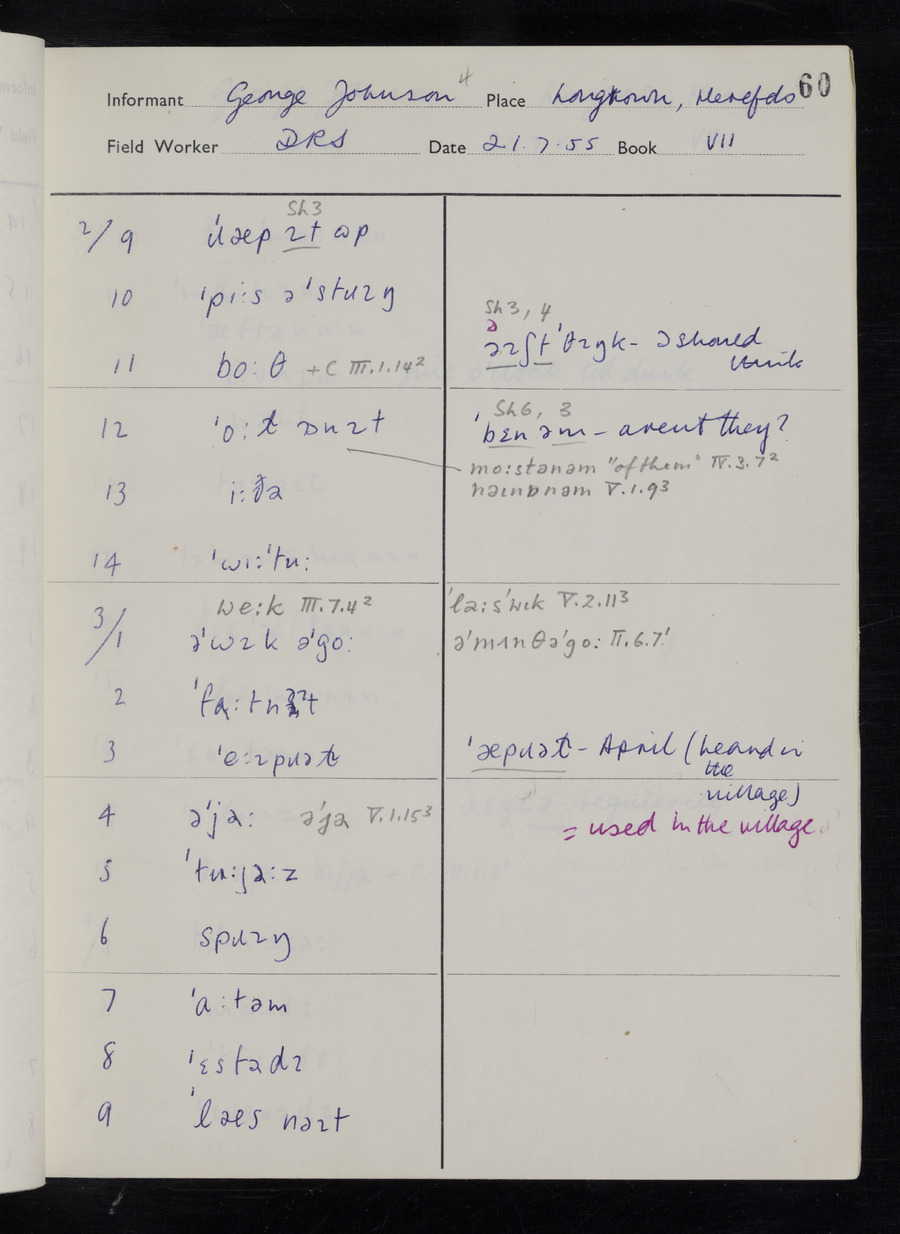 60
Informant George Johnson 4 Place Longtown, Herefds
Field Worker DRS Date 21.7.55 Book VII
Sh3
2/9 ˈɹæp ɪt ɷp
10 ˈpiːs əˈstɹɪŋ
Sh3, 4
ə
11 boːθ +C III.1.14² əɪʃtˈθɪŋk - I should
think
Sh6, 3
12 ˈbɛn əm - arent they?
moːstənəm "of them" IV.3.7²
13 iːðə nəɪnɒnəm V.1.9³
14 ˈwɪːˈtuː
weːk III.7.4² ˈlaːsˈwɪk V.2.11³
3/1 əˈwɪk əˈgoː əˈmʌnθəˈgoː II.6.7¹
2
3 ˈeːɪpɹət ˈæpɹət - April (heard in
the
village)
4 əˈjəː əˈjə V.1.15³
= used in the village
5 ˈtuːjəːz
6 spɹɪŋ
7 ˈaːtəm
8 ˈɛstədɪ
9 ˈlæs nəɪt